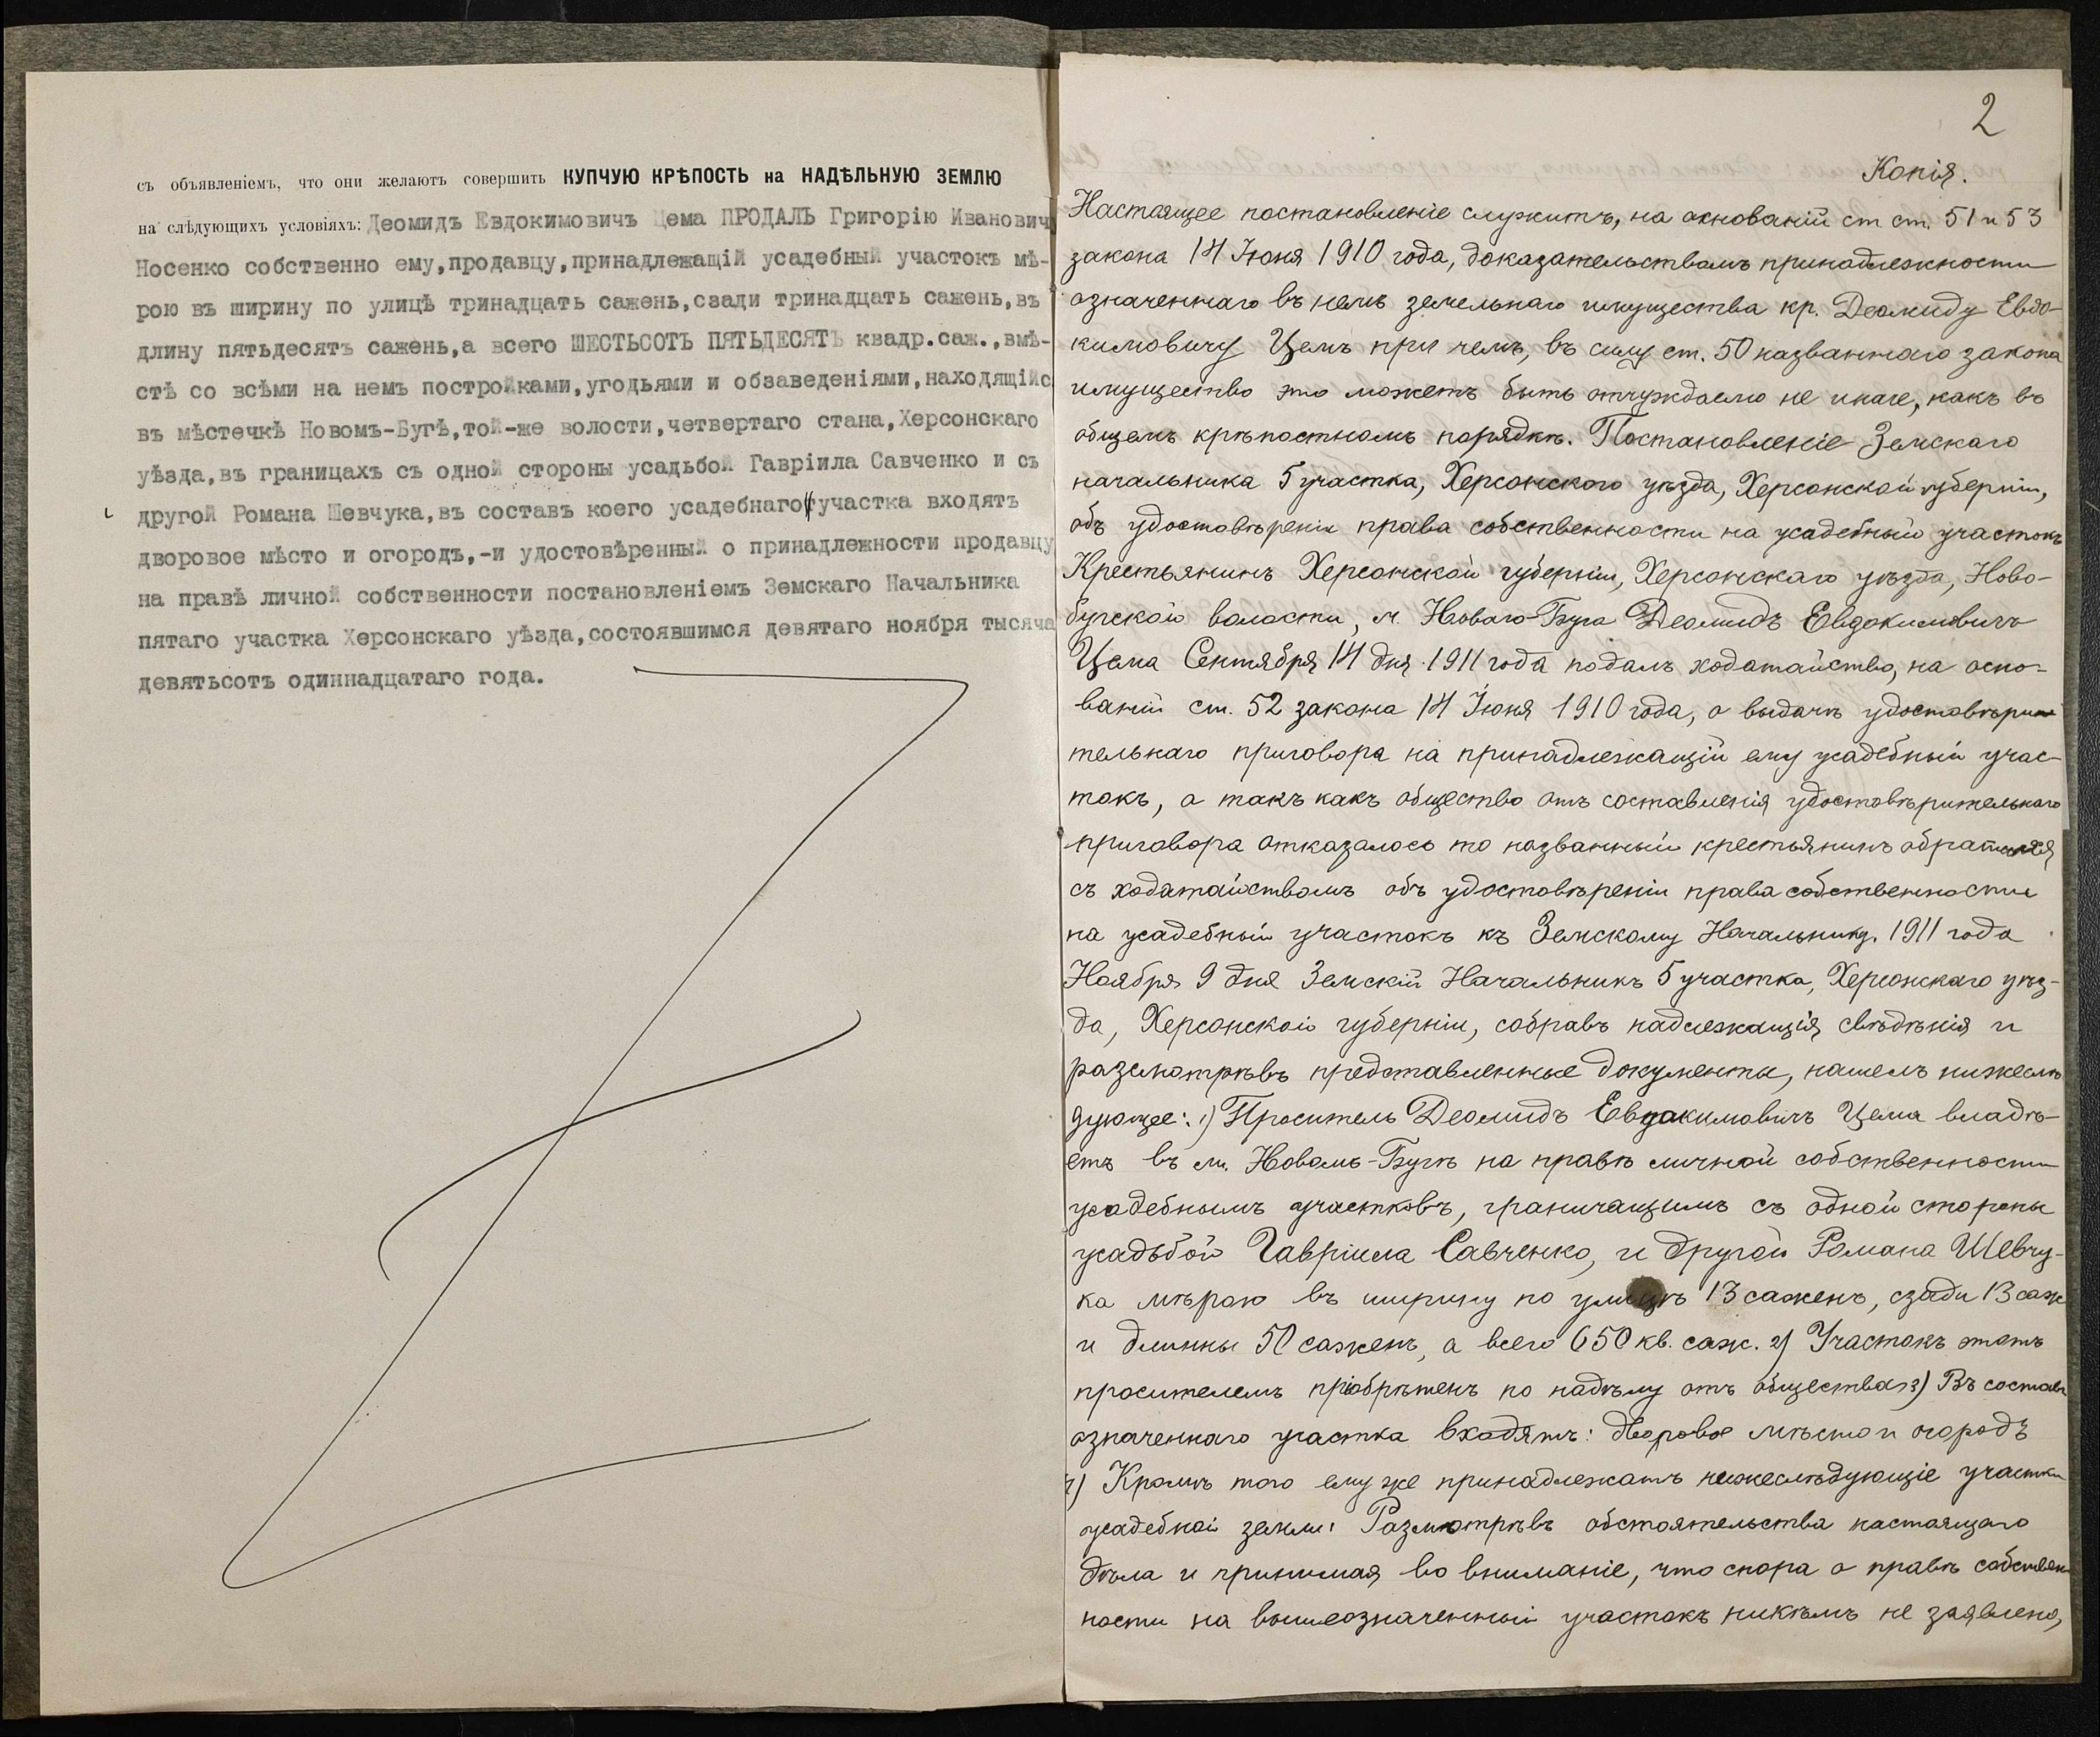 съ объявленіемъ, что они желаютъ совершить КУПЧУЮ КРѢПОСТЬ на НАДѢЛЬНУЮ ЗЕМЛЮ
на слѣдующихъ условіяхъ: Деомидъ Евдокимовичъ Цема ПРОДАЛЪ Григорію Иванович
Носенко собственно ему,продавцу,принадлежащій усадебный участокъ мѣ-
рою въ ширину по улицѣ тринадцать сажень,сзади тринадцать сажень,въ
длину пятьдесятъ сажень,а всего ШЕСТЬСОТЪ ПЯТЬДЕСЯТЪ квадр.саж.,вмѣ-
стѣ со всѣми на немъ постройками,угодьями и обзаведеніями,находящійс
въ мѣстечкѣ Новомъ-Бугѣ,той-же волости,четвертаго стана,Херсонскаго
уѣзда,въ границахъ съ одной стороны усадьбой Гавріила Савченко и съ
другой Романа Шевчука,въ составъ коего усадебнаго участка входятъ
дворовое мѣсто и огородъ,-и удостовѣренный о принадлежности продавцу
на правѣ личной собственности постановленіемъ Земскаго Начальника
пятаго участка Херсонскаго уѣзда,состоявшимся девятаго ноября тысяча
девятьсотъ одиннадцатаго года.
2
Копія.
Настоящее постановленіе служитъ, на основаній ст ст. 51 и 53
закона 14 Іюня 1910 года, доказательствомъ принадлежности
означеннаго въ немъ земельнаго имущества кр. Деомиду Евдо-
кимовичу Цемъ при чемъ, въ силу ст. 50 названнаго закона
имущество это можетъ быть отчуждаемо не иначе, какъ въ
общемъ крѣпостномъ порядкѣ. Постановленіе Земскаго
начальника 5 участка, Херсонского уѣзда, Херсонской губерніи,
объ удостовѣреніи права собственности на усадебный участокъ
Крестьянинъ Херсонской губерніи, Херсонскаго уѣзда, Ново-
бугской волости, м. Новаго-Буга Деомидъ Евдокимовичъ
Цема Сентября 14 дня 1911 года подалъ ходатайство, на осно-
ваній ст. 52 закона 14 Іюня 1910 года, о выдачѣ удостовѣри
тельнаго приговора на принадлежащій ему усадебный учас-
токъ, а такъ какъ общество отъ составленія удостовѣрительнаго
приговора отказалось то названный крестьянинъ обратился
съ ходатайствомъ объ удостовѣреніи права собственности
на усадебный участокъ къ Земскому Начальнику. 1911 года
Ноября 9 дня Земскій Начальникъ 5 участка, Херсонскаго уѣз-
да, Херсонской губерніи, собравъ надлежащія свѣдѣнія и
разсмотрѣвъ представленные документы, нашелъ нижеслѣ
дующее: 1) Проситель Деомидъ Евдокимовичъ Цема владѣ-
етъ въ м. Новомъ-Бугѣ на правѣ личной собственности
усадебнымъ участковъ, граничащимъ съ одной стороны
усадьбой Гавріила Савченко, и другой Романа Шевчу-
ка мѣрою въ ширину по улицѣ 13 сажень, сзади 13 саж
и длинны 50 сажень, а всего 650 кв. саж. 2) Участокъ этотъ
просителемъ пріобрѣтенъ по надѣлу отъ общества 3) Въ составъ
означеннаго участка входятъ: дворовое мѣсто и огородъ
4) Кромѣ того ему же принадлежатъ нижеслѣдующіе участки
усадебной земли: Разсмотрѣвъ обстоятельства настоящаго
дѣла и принимая во вниманіе, что спора о правѣ собствен
ности на вышеозначенный участокъ никѣмъ не заявлено,